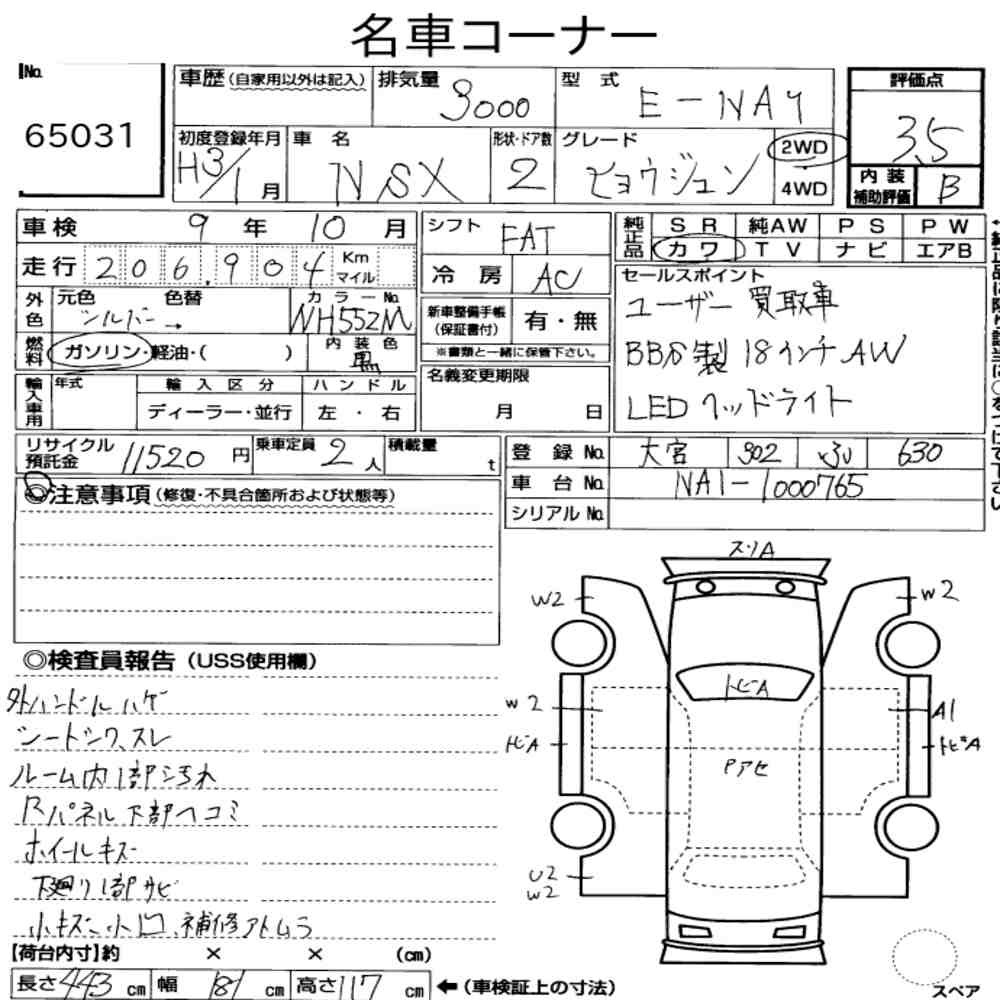 名車コーナー
No. 65031
車歴 (自家用以外は記入) 排気量 3000 型式 E-NA1 評価点 3.5
初度登録年月 H3/1月 車名 NSX 形状・ドア数 2 グレード ヒョウジュン 2WD 4WD 内装補助評価 B
車検 9年 10月 シフト FAT 純正品 SR 純AW PS PW
走行 206,904 Km マイル 冷房 AC カワ TV ナビ エアB
外色 元色 シルバー → 色替 カラーNo. NH552M 新車整備手帳(保証書付) 有・無
※書類と一緒に保管下さい。
燃料 ガソリン・軽油・( ) 内装色 黒
セールスポイント
ユーザー買取車
BBS製18インチAW
LEDヘッドライト
輸入車用 年式 輸入区分 ディーラー・並行 ハンドル 左・右 名義変更期限 月 日
リサイクル預託金 11520円 乗車定員 2人 積載量 t
登録No. 大宮 302 630
車台No. NA1-1000765
シリアルNo.
◎注意事項 (修復・不具合箇所および状態等)
◎検査員報告 (USS使用欄)
外ハンドルハゲ
シートシワ、スレ
ルーム内1部汚れ
Rパネル下部ヘコミ
ホイールキズ
下廻り1部サビ
小キズ、小凹、補修アトムラ
スリA
W2 W2
トビA
W2 A1
トビA トビA
Pアセ
U2
W2
スペア
【荷台内寸】約 × × (cm)
長さ 443 cm 幅 181 cm 高さ 117 cm ←(車検証上の寸法)